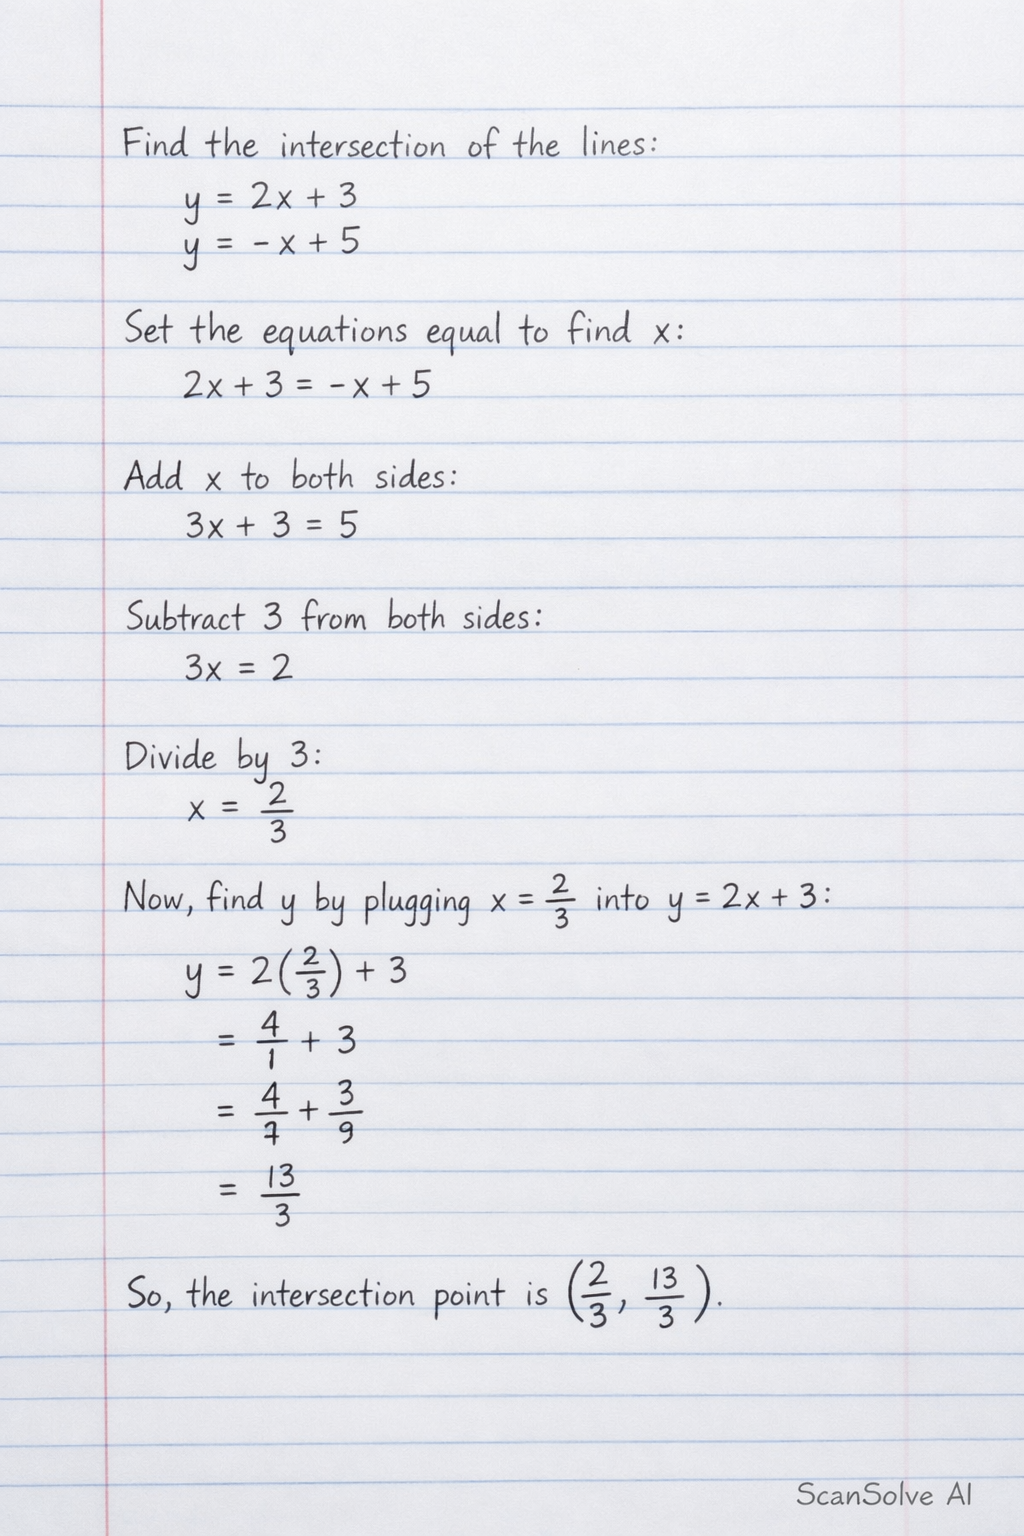 Find the intersection of the lines:
y = 2x + 3
y = -x + 5
Set the equations equal to find x:
2x + 3 = -x + 5
Add x to both sides:
3x + 3 = 5
Subtract 3 from both sides:
3x = 2
Divide by 3:
x = 2/3
Now, find y by plugging x = 2/3 into y = 2x + 3:
y = 2(2/3) + 3
= 4/1 + 3
= 4/7 + 3/9
= 13/3
So, the intersection point is (2/3, 13/3).
ScanSolve AI